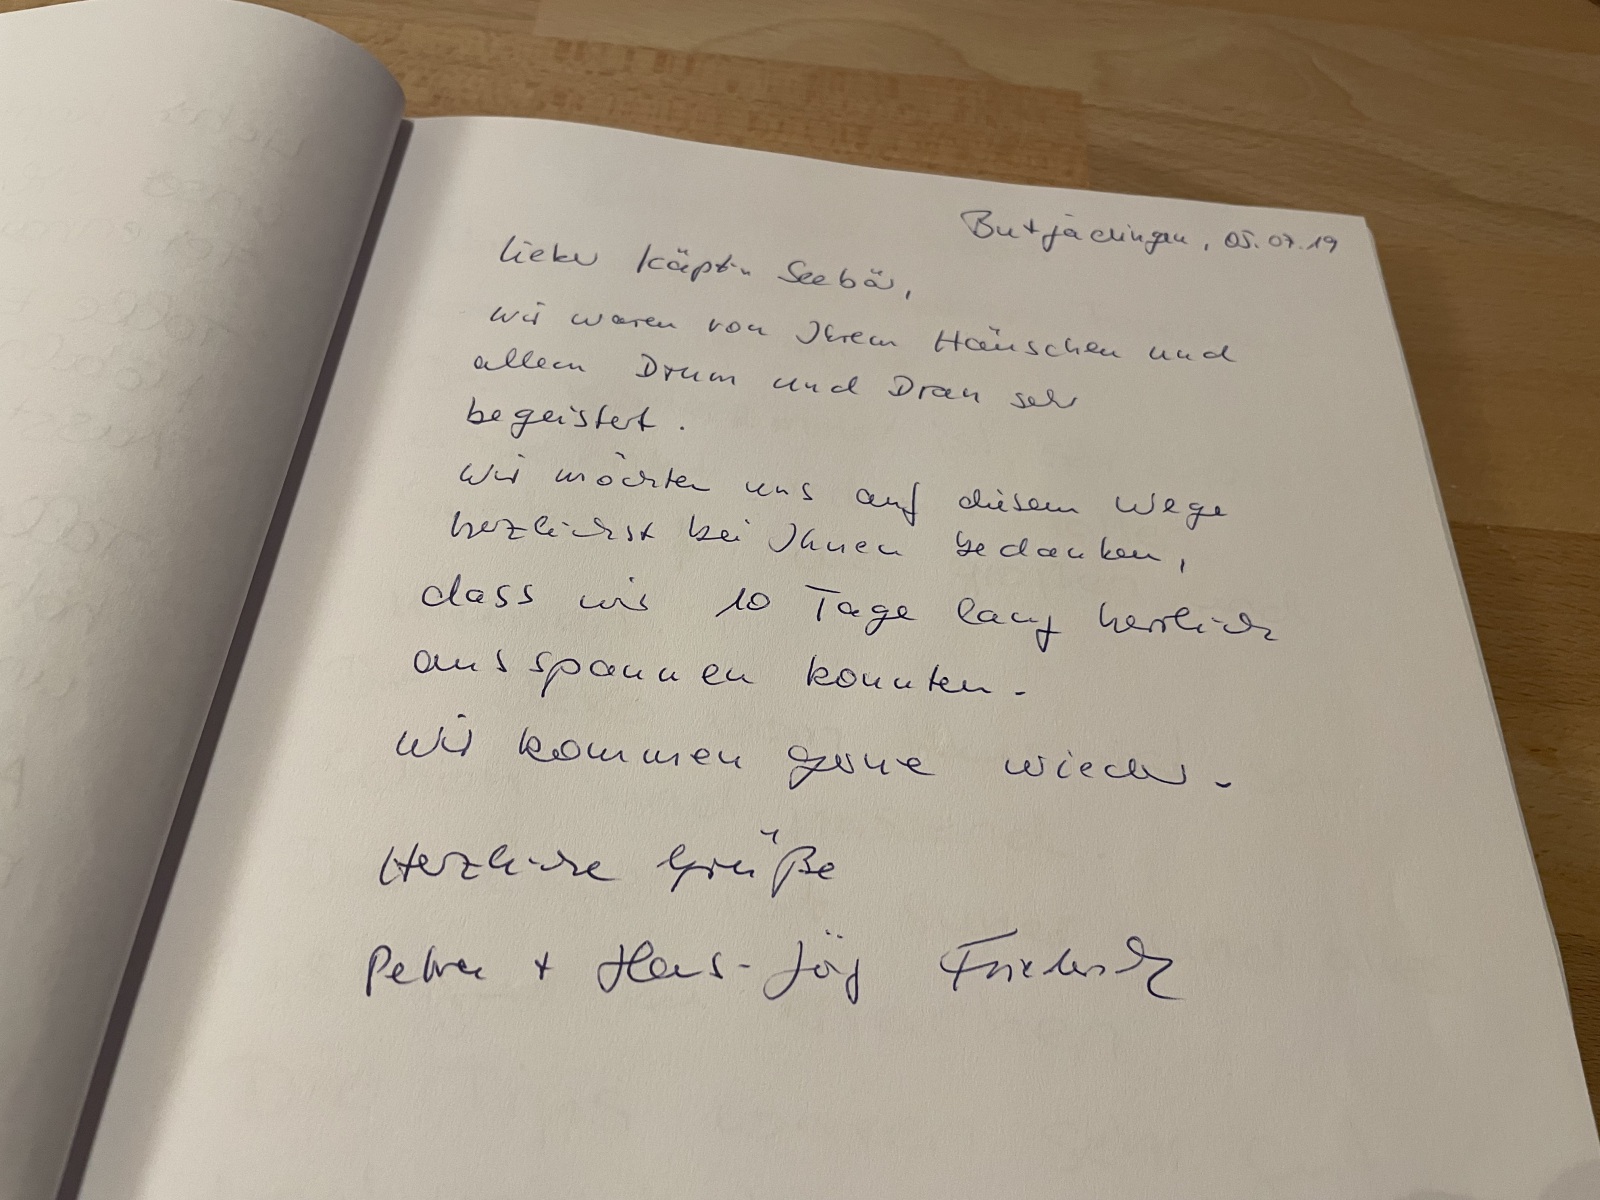 Butjadingen, 05.07.19
Lieber Käpt'n Seebär,
wir waren von Ihrem Häuschen und
allem Drum und Dran sehr
begeistert.
Wir möchten uns auf diesem Wege
herzlichst bei Ihnen bedanken,
dass wir 10 Tage lang herrlich
ausspannen konnten.
Wir kommen gerne wieder.
Herzliche Grüße
Petra + Hans-Jörg